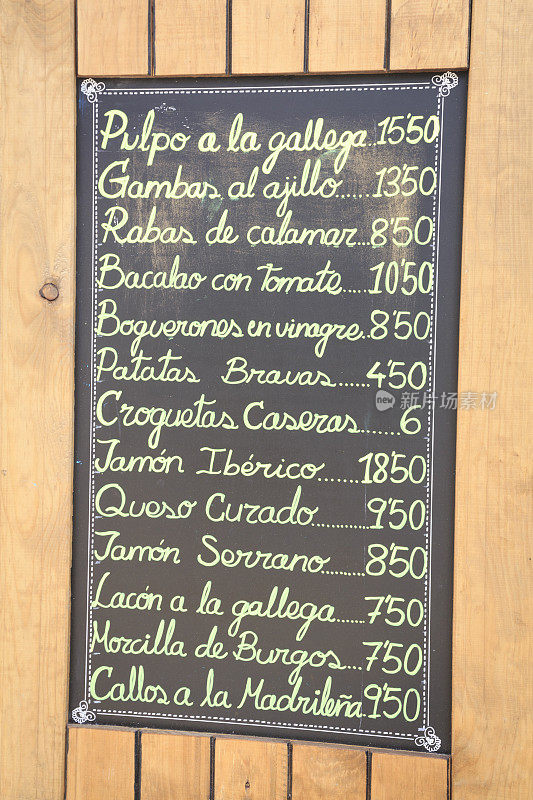 Pulpo a la gallega..15'50
Gambas al ajillo......13'50
Rabas de calamar...8'50
Bacalao con Tomate.....10'50
Boquerones en vinagre..8'50
Patatas Bravas......4'50
Croquetas Caseras.......6
Jamón Ibérico.......18'50
Queso Curado.........9'50
Jamón Serrano.......8'50
Lacón a la gallega.....7'50
Morcilla de Burgos...7'50
Callos a la Madrileña 9'50
new 视觉中国